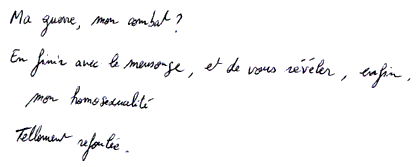 Ma guerre, mon combat ?
En finir avec le mensonge, et de vous révéler, enfin,
mon homosexualité
Tellement refoulée.